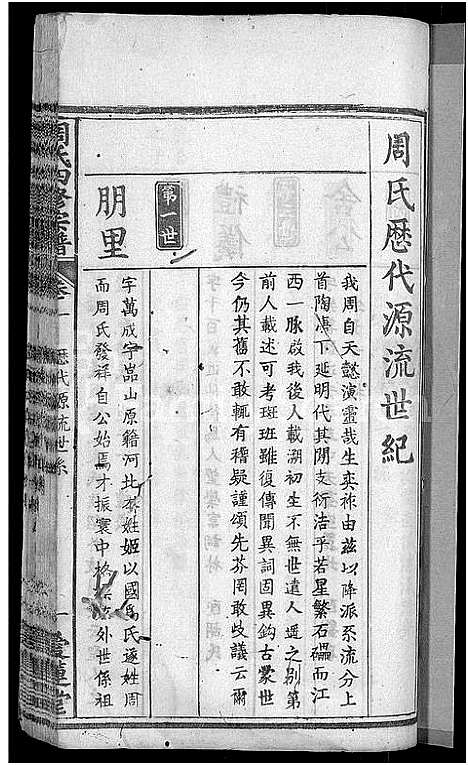 周氏歷代源流世紀
我周自天懿演靈哉生奕祚由茲以降派系流分上
首陶馮下延明代其閒支衍浩乎若星繁石礧而江
西一脉啟我後人載溯初生不無世遠人遥之別第
前人載述可考班班雖復傳聞異詞固異鈎古蒙世
今仍其舊不敢輒有稽疑謹頌先芬罔敢歧議云爾
第一世
朋里
字萬成字嵓山原籍河北 姓姬以國爲氏遂姓周
而周氏發祥自公始焉才振寰中 外世係祖
周氏四修宗譜
卷一
歷代源流世系
一
愛蓮堂